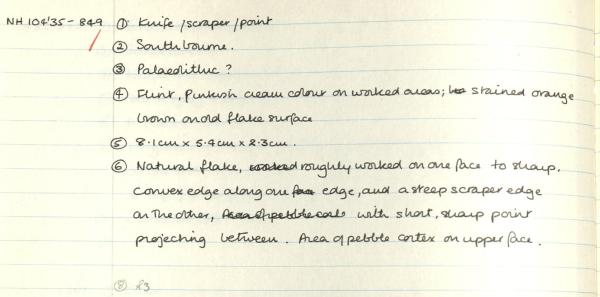 NH 104'35 - 849 ① Knife/scraper/point
② Southbourne.
③ Palaeolithic?
④ Flint, pinkish cream colour on worked areas; stained orange
brown on old flake surface
⑤ 8.1cm x 5.4cm x 2.3cm.
⑥ Natural flake, worked roughly worked on one face to sharp,
convex edge along one face edge, and a steep scraper edge
on the other, Area of pebble with short, sharp point
projecting between. Area of pebble cortex on upper face.
⑧ 23